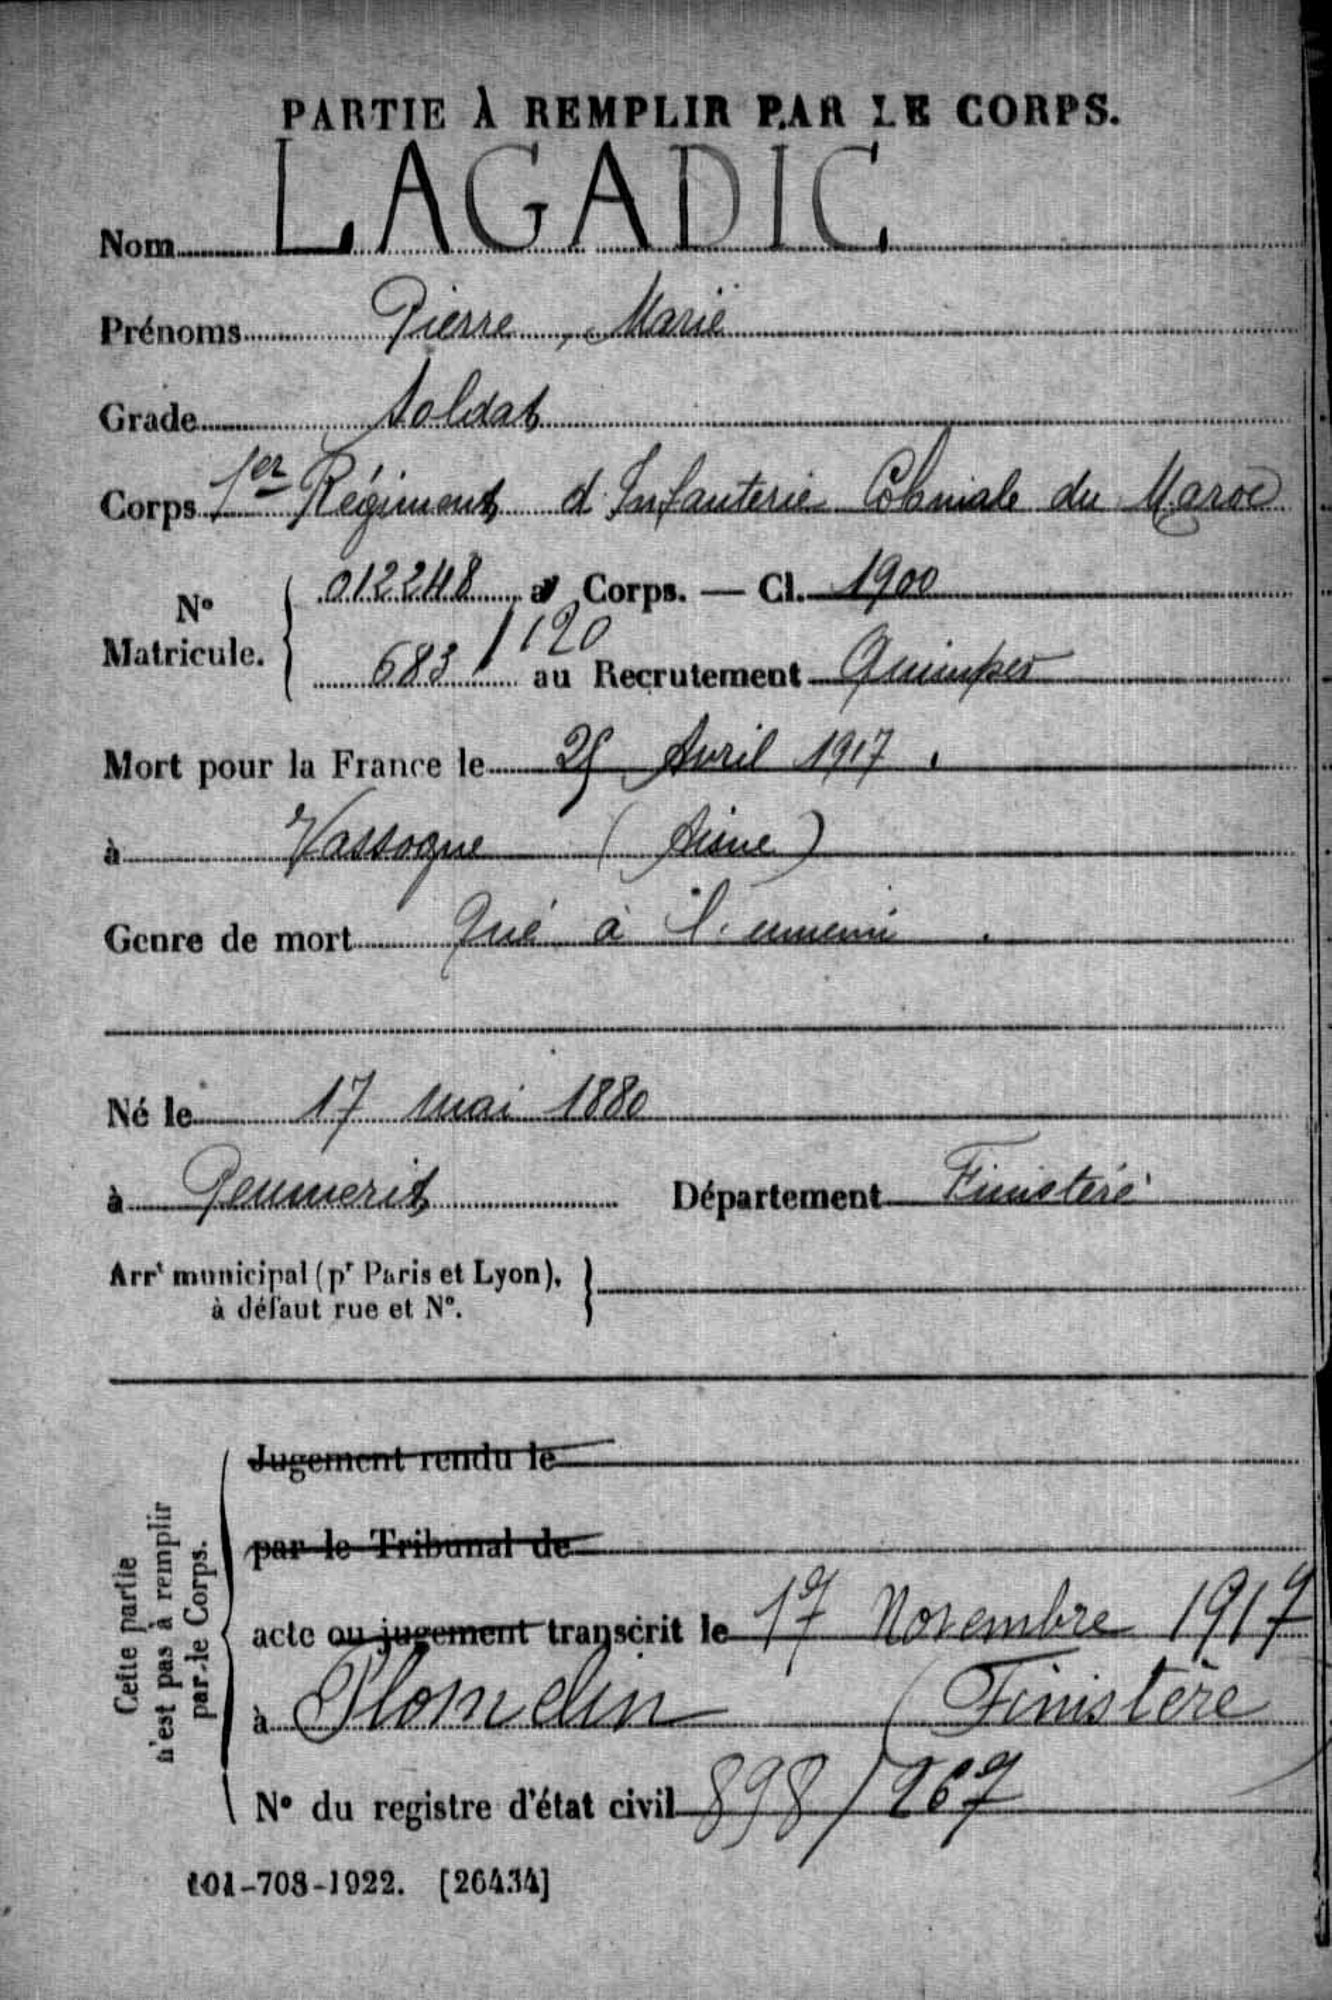 PARTIE À REMPLIR PAR LE CORPS.
Nom LAGADIC
Prénoms Pierre, Marie
Grade Soldat
Corps 1er Régiment d'Infanterie Coloniale du Maroc
N° Matricule. { 012248 au Corps. — Cl. 1900
683 / 120 au Recrutement Quimper
Mort pour la France le 25 Avril 1917.
à Vassogne (Aisne)
Genre de mort Tué à l'ennemi.
Né le 17 mai 1880
à Peumerit Département Finistère
Arrt municipal (pr Paris et Lyon), }
à défaut rue et N°.
Cette partie
n'est pas à remplir
par le Corps.
Jugement rendu le
par le Tribunal de
acte ou jugement transcrit le 17 Novembre 1917
à Plomelin (Finistère
N° du registre d'état civil 898/267
101-708-1922. [26434]